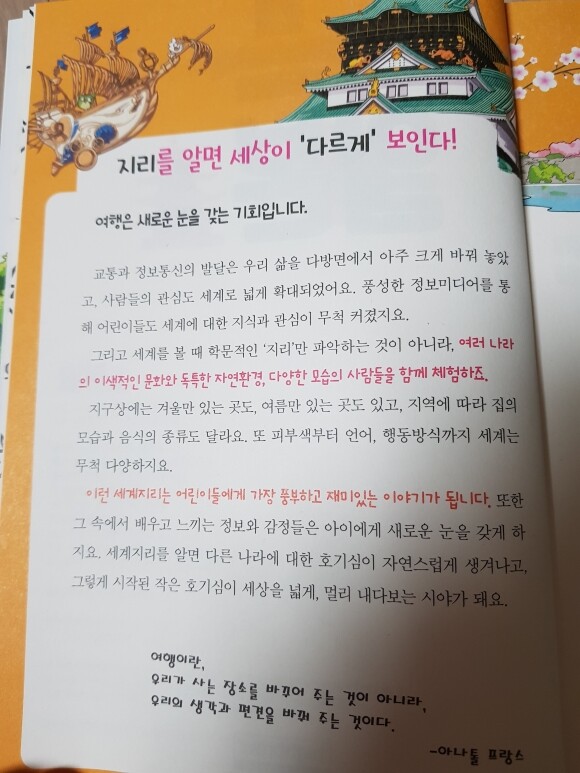 지리를 알면 세상이 '다르게' 보인다!
여행은 새로운 눈을 갖는 기회입니다.
교통과 정보통신의 발달은 우리 삶을 다방면에서 아주 크게 바꿔 놓았
고, 사람들의 관심도 세계로 넓게 확대되었어요. 풍성한 정보미디어를 통
해 어린이들도 세계에 대한 지식과 관심이 무척 커졌지요.
그리고 세계를 볼 때 학문적인 '지리'만 파악하는 것이 아니라, 여러 나라
의 이색적인 문화와 독특한 자연환경, 다양한 모습의 사람들을 함께 체험하죠.
지구상에는 겨울만 있는 곳도, 여름만 있는 곳도 있고, 지역에 따라 집의
모습과 음식의 종류도 달라요. 또 피부색부터 언어, 행동방식까지 세계는
무척 다양하지요.
이런 세계지리는 어린이들에게 가장 풍부하고 재미있는 이야기가 됩니다. 또한
그 속에서 배우고 느끼는 정보와 감정들은 아이에게 새로운 눈을 갖게 하
지요. 세계지리를 알면 다른 나라에 대한 호기심이 자연스럽게 생겨나고,
그렇게 시작된 작은 호기심이 세상을 넓게, 멀리 내다보는 시야가 돼요.
여행이란,
우리가 사는 장소를 바꾸어 주는 것이 아니라,
우리의 생각과 편견을 바꿔 주는 것이다.
-아나톨 프랑스